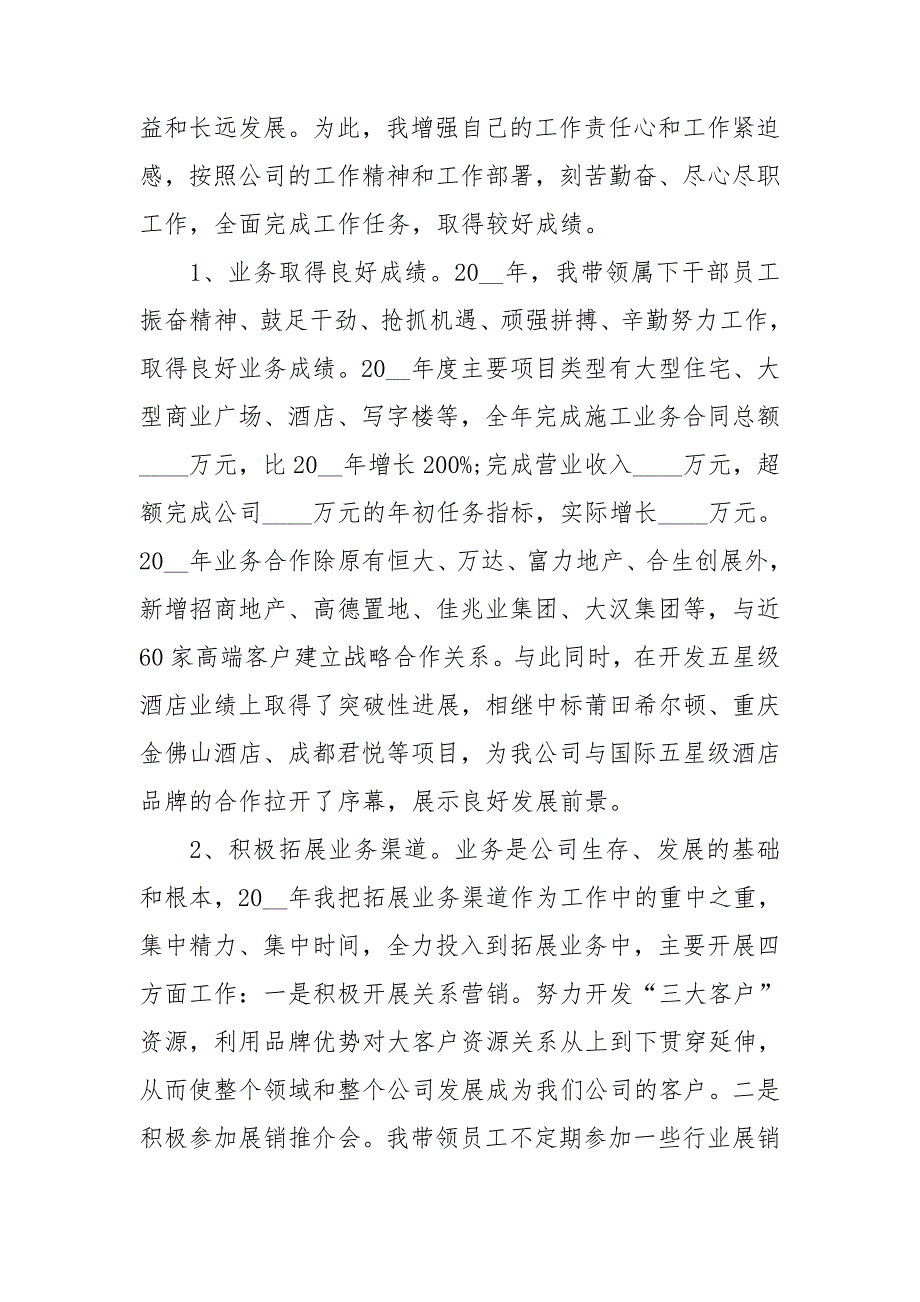 益和长远发展。为此，我增强自己的工作责任心和工作紧迫
感，按照公司的工作精神和工作部署，刻苦勤奋、尽心尽职
工作，全面完成工作任务，取得较好成绩。
1、业务取得良好成绩。20__年，我带领属下干部员工
振奋精神、鼓足干劲、抢抓机遇、顽强拼搏、辛勤努力工作，
取得良好业务成绩。20__年度主要项目类型有大型住宅、大
型商业广场、酒店、写字楼等，全年完成施工业务合同总额
____万元，比 20__年增长 200%;完成营业收入____万元，超
额完成公司____万元的年初任务指标，实际增长____万元。
20__年业务合作除原有恒大、万达、富力地产、合生创展外，
新增招商地产、高德置地、佳兆业集团、大汉集团等，与近
60 家高端客户建立战略合作关系。与此同时，在开发五星级
酒店业绩上取得了突破性进展，相继中标莆田希尔顿、重庆
金佛山酒店、成都君悦等项目，为我公司与国际五星级酒店
品牌的合作拉开了序幕，展示良好发展前景。
2、积极拓展业务渠道。业务是公司生存、发展的基础
和根本，20__年我把拓展业务渠道作为工作中的重中之重，
集中精力、集中时间，全力投入到拓展业务中，主要开展四
方面工作：一是积极开展关系营销。努力开发“三大客户”
资源，利用品牌优势对大客户资源关系从上到下贯穿延伸，
从而使整个领域和整个公司发展成为我们公司的客户。二是
积极参加展销推介会。我带领员工不定期参加一些行业展销